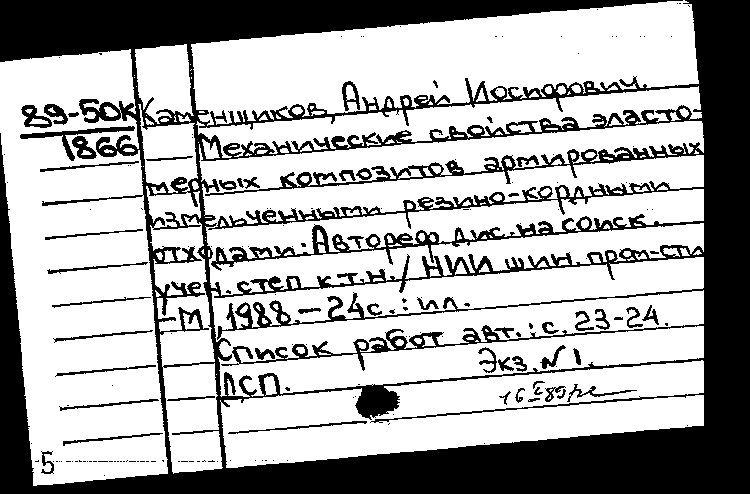 89-50К Каменщиков, Андрей Иосифович.
1866 Механические свойства эласто-
мерных композитов армированных
измельченными резино-кордными
отходами: Автореф. дис. на соиск.
учен. степ к.т.н. / НИИ шин. пром-сти
-М., 1988.-24с.: ил.
Список работ авт.: с. 23-24.
ДСП. Экз. №1.
5